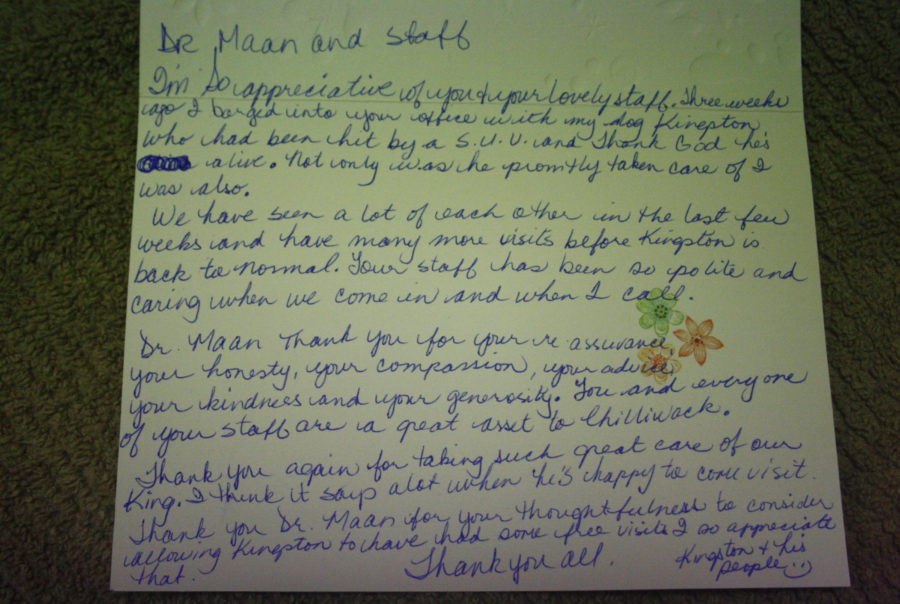 Dr Maan and Staff
I'm So appreciative of you & your lovely staff. Three weeks
ago I barged into your office with my dog Kingston
who had been hit by a S.U.V. and Thank God he's
alive. Not only was he promtly taken care of I
was also.
We have seen a lot of each other in the last few
weeks and have many more visits before Kingston is
back to normal. Your staff has been so polite and
caring when we come in and when I call.
Dr. Maan Thank you for your re assurance,
your honesty, your compassion, your advice
your kindness and your generosity. You and everyone
of your staff are a great asset to Chilliwack.
Thank you again for taking such great care of our
King. I think it says alot when he's happy to come visit.
Thank you Dr. Maan for your thoughtfulness to consider
allowing Kingston to have had some free visits I so appreciate
that.
Thank you all.
Kingston & his
people :)